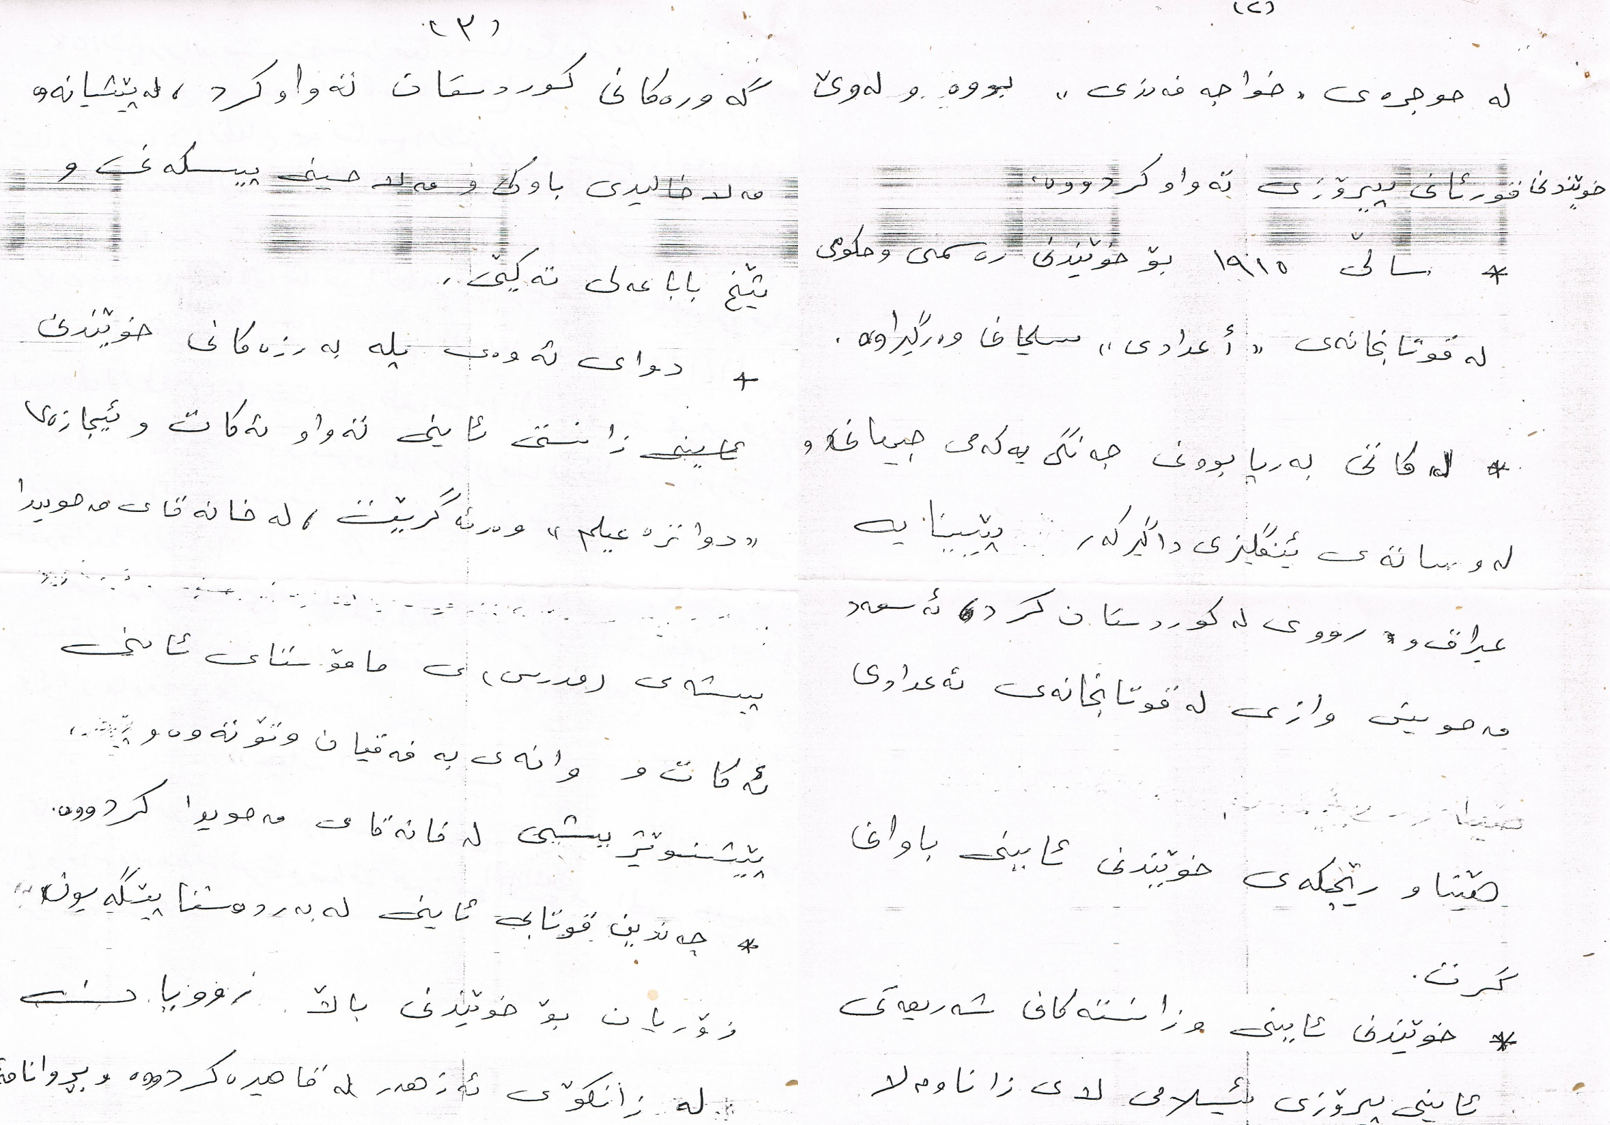 (٢)
لە حوجرەی «خواجە فەندی» بووە و لەوێ
خوێندنی قورئانی پیرۆزی تەواو کردووە.
* ساڵی ١٩١٥ بۆ خوێندنی رەسمی و حکومی
لە قوتابخانەی «أعدادی» سلێمانی وەرگیراوە.
* لە کاتی بەرپابوونی جەنگی یەکەمی جیهانی و
لەو ساتەی ئینگلیزی داگیرکەر پێی نایە
عیراق و رووی لە کوردستان کرد، ئەسعەد
مەحوی وازی لە قوتابخانەی ئەعدادی
هێنا و رێچکەی خوێندنی ئایینی باوانی
گرت.
* خوێندنی ئایینی و زانستەکانی شەریعەتی
ئایینی پیرۆزی ئیسلامی لای زانا و مەلا
(٣)
گەورەکانی کوردستان تەواو کرد، لە پێشیانەوە
مەلا خالیدی باوکی و مەلا حسینی پیسکەندی و
شێخ بابا عەلی تەکیێ.
+ دوای ئەوەی پلە بەرزەکانی خوێندنی
ئایینی زانستی ئاینی تەواو ئەکات و ئیجازەی
«دوانزە عیلم» وەرئەگرێت، لە خانەقای مەحویدا
پیشەی (مدرس)ی مامۆستای ئاینی
ئەکات و وانەی بە فەقێیان وتۆتەوە و
پێشنوێژیشی لە خانەقای مەحویدا کردووە.
* چەندین قوتابی ئاینی لە بەردەستا پێگەیون
زۆریان بۆ خوێندنی باڵا
لە زانکۆی ئەزهەر لە قاهیرە کردووە و بڕوانامە